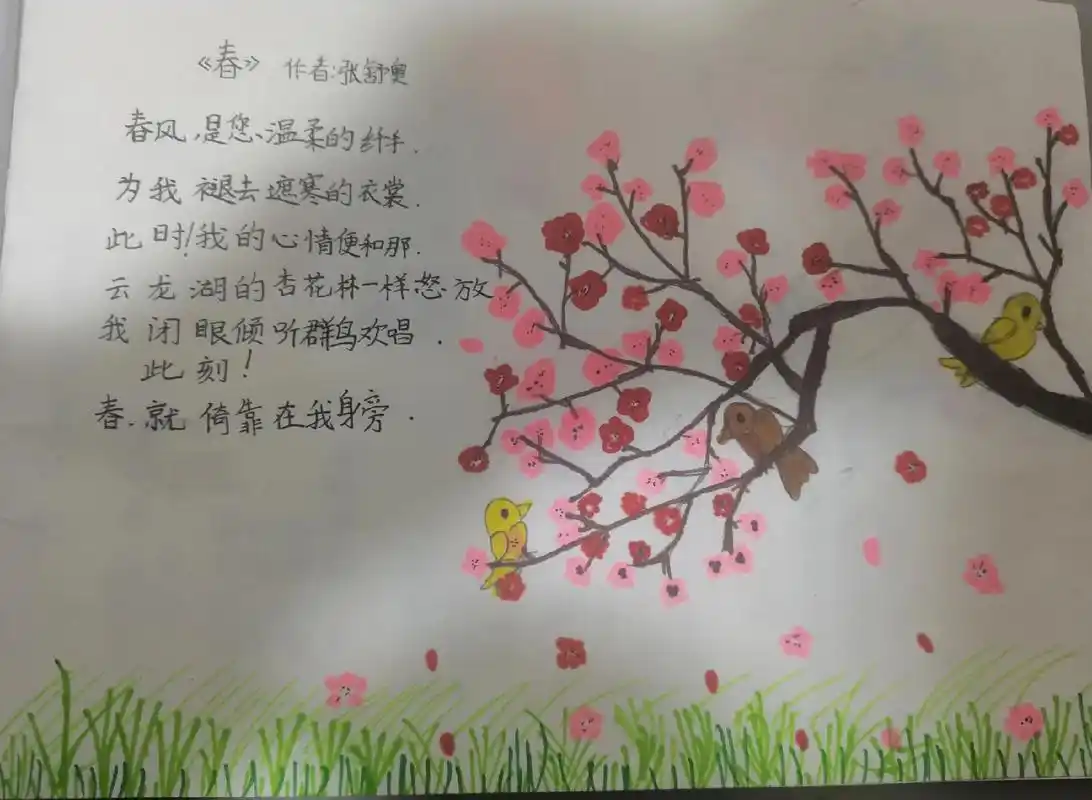 《春》 作者:张舒奥
春风,是您、温柔的纤手.
为我褪去遮寒的衣裳.
此时!我的心情便和那.
云龙湖的杏花林一样怒放
我闭眼倾听群鸟欢唱.
此刻!
春.就倚靠在我身旁.